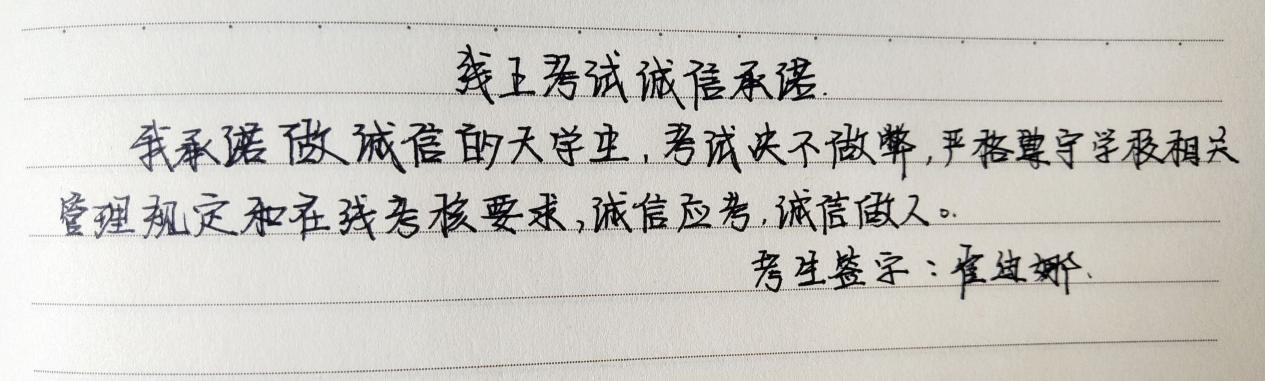 线上考试诚信承诺.
我承诺做诚信的大学生,考试决不做弊,严格尊守学校相关
管理规定和在线考核要求,诚信应考,诚信做人。
考生签字:崔迪娜.